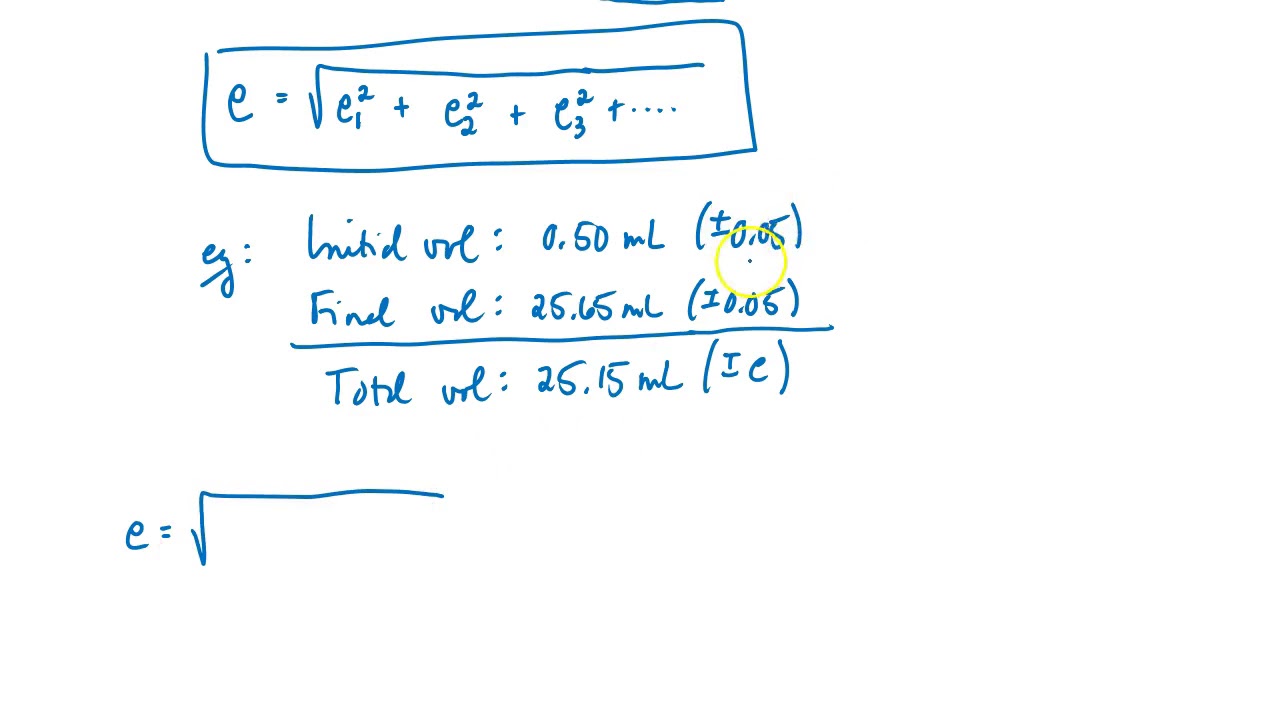 e = √e₁² + e₂² + e₃² + ....
eg: Initial vol: 0.50 mL (±0.05)
Final vol: 25.65 mL (±0.05)
Total vol: 25.15 mL (± e)
e = √